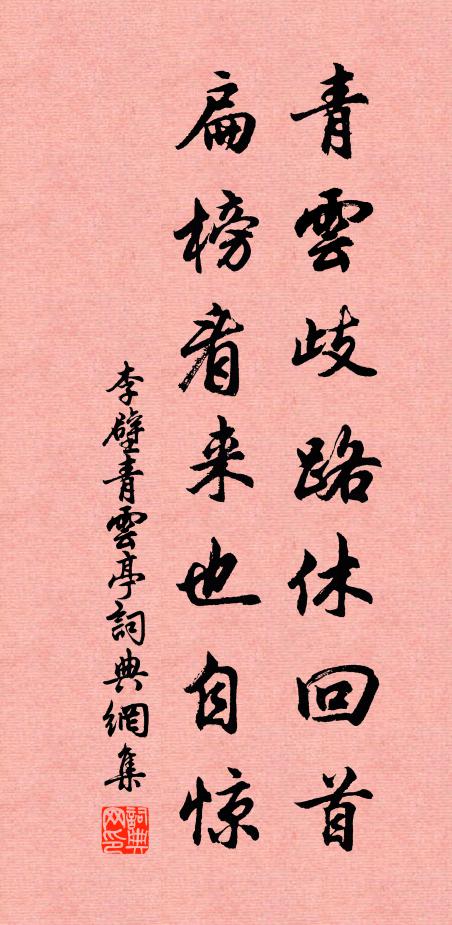 青雲歧路休回首
扁榜看来也自惊
李壁青雲亭詞典網集
詞典网印